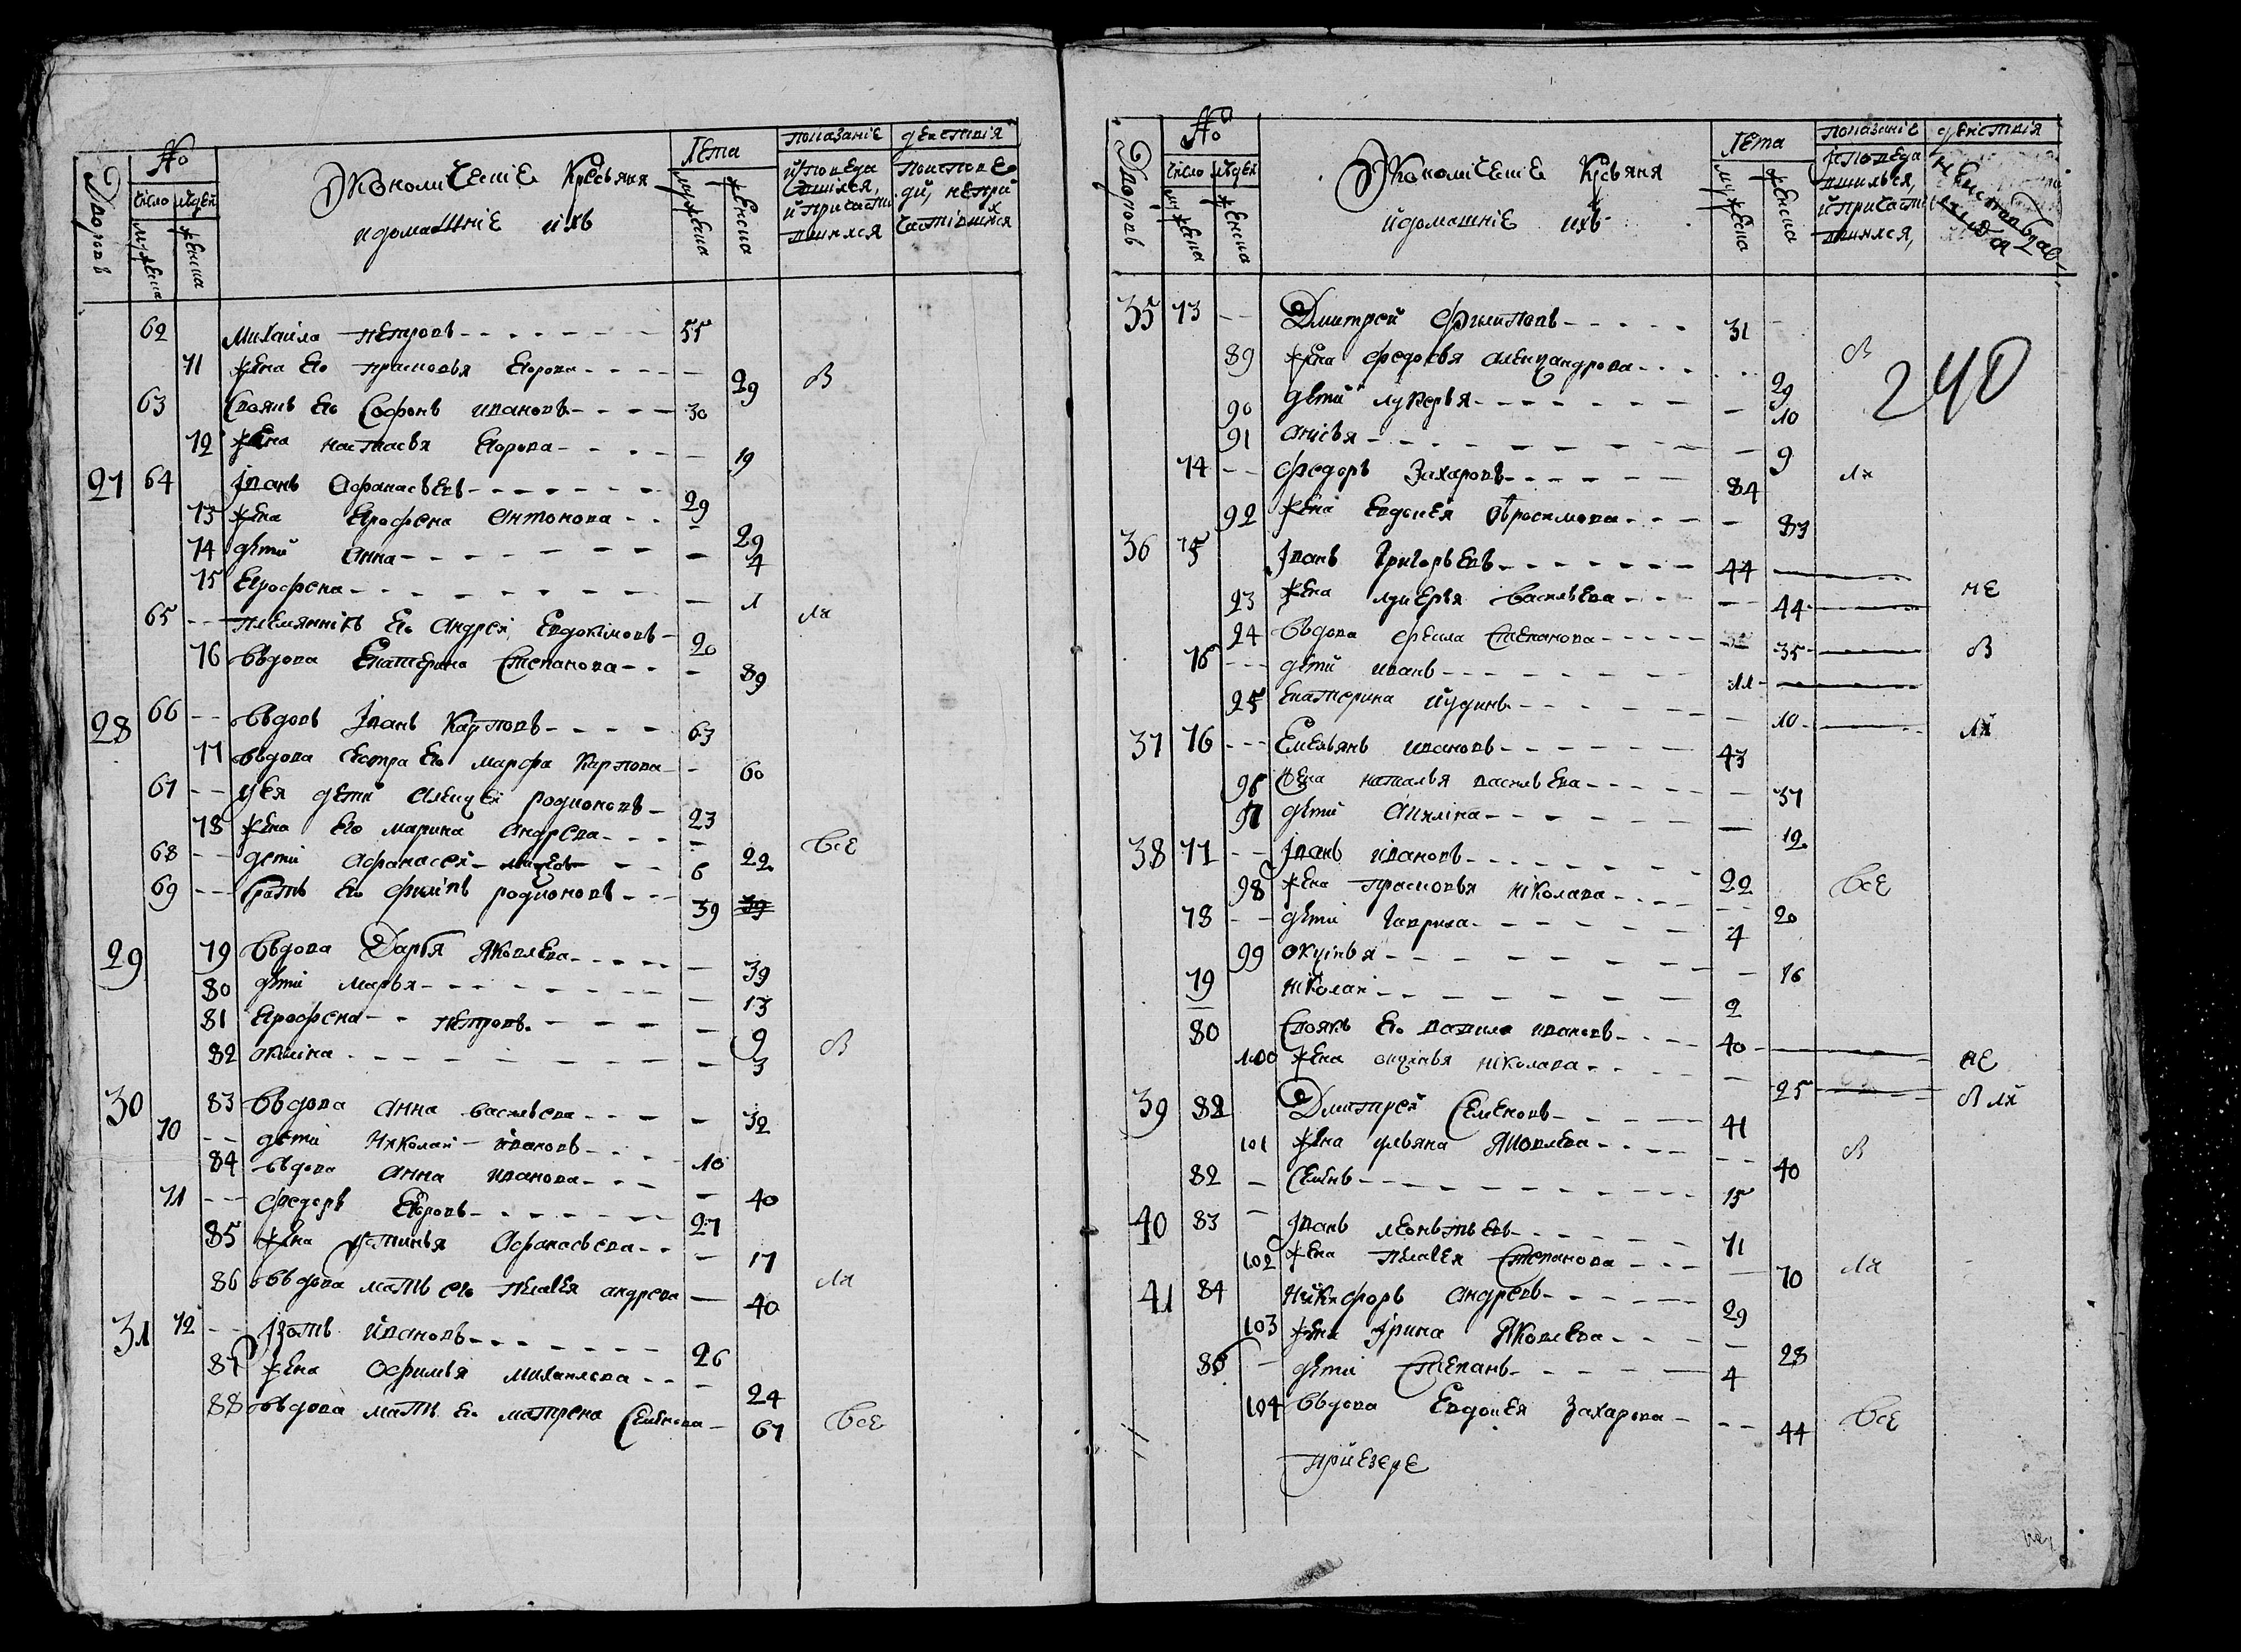 Дворовъ
№
число людей
мужеска
женска
Экономическiе Кресьяня
и домашнiе ихъ
Лета
мужеска
женска
показанiе действiя
исповеда
вшихся,
и причасти
вшихся
по исповe
ди, непри
частiвшихся
62 михаила петровъ 55
71 жена Его прасковья Егорова 29 В
63 Своякъ Его Софонъ ивановъ 30
72 жена настасья Егорова 19
27 64 Iванъ Афанасьевъ 29
73 жена Епрофена Антонова 29
74 дети Анна 4
75 Епрофена 1
65 племяннiкъ Его Андрей Евдокiмовъ 20 ли
76 Вдова Екатерина Степанова 89
28 66 Вдовъ Iванъ Карповъ 63
77 Вдова сестра Его марфа Карпова 60
67 у Ея дети Алексей родионовъ 23
78 жена Его марина Андрева 22 все
68 дети Афанасей 6
69 братъ Его филiпъ родионовъ 39 39
29 79 Вдова Дарья Яковлева 39
80 дети марья 13
81 Епрофена петровъ 9 В
82 окилiна 3
30 83 Вдова Анна васильева 32
70 дети Николаи ивановъ 10
84 вдова Анна иванова 40
71 федоръ Егоровъ 27
85 жена устинья Афанасьева 17
86 Вдова мать его пелагея андрева 40 ли
31 72 Iзотъ ивановъ 26
87 жена Офимья михаилова 24
88 Вдова мать Его матрена Семенова 67 все
Дворовъ
№
число людей
мужеска
женска
Экономiческiе Кресьяня
и домашнiе ихъ
Лета
мужеска
женска
показанiе действiя
исповеда
вшихься,
и причасти
вшихся,
240
35 73 Дмитрей филиповъ 31
89 жена федосья александрова 29 В
90 дети лукерья 10
91 анисья 9
74 федоръ Захаровъ 84 ли
92 жена Евдокея Еβросимова 83
36 75 Iванъ Григорьевъ 44
93 жена лукерья васильева 44 не
94 Вдова фекла Степанова 35 В
76 дети иванъ 11
95 Екатерина иудинъ 10 ли
37 76 Емельянъ ивановъ 43
96 жена наталья васильева 37
97 дети Акилiна 12
38 77 Iванъ ивановъ 22
98 жена прасковья нiколава 20 все
78 дети гаврила 4
99 окулiвья 16
79 нiколаи 2
80 Своякъ Его вавила ивановъ 40 не
100 жена окулiнья нiколава 25 В ли
39 82 Дмитрей Семеновъ 41
101 жена ульяна Яковлева 40 В
82 Семенъ 15
40 83 Iванъ леоньтьевъ 71
102 жена пелагея Степанова 70 ли
41 84 Никифоръ андревъ 29
103 жена Iрина Яковлева 28
85 дети Степанъ 4
104 Вдова Евдокея Захарова 44 все
при езере